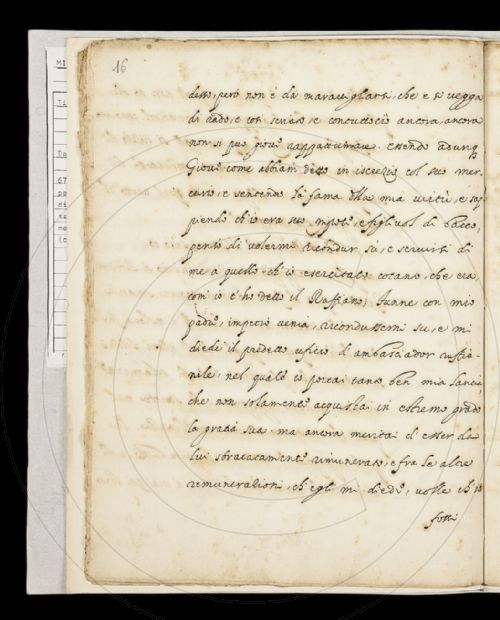 16
detto, però non è da maravegliarti, che e si vegga
di rado, e con scrivo, e contuttociò ancora, ancora
non si può Giove rappattumare. essendo adunq
Giove come abbiam detto in iscrezio col suo mer
curio, e sentendo la fama della mia virtù, e sap
piendo ch'io era suo nipote, e figliuol di bacco,
pensò di volermi ricondur su, e servirsi di
me a quello ch'io esercitato cotanto, che era
com'io t'ho detto il Ruffiano; Funne con mio
padre, imperò venia, ricondussemi su, e mi
diedi il predetto uficio d'ambasciador ruffia-
nile, nel quale io portai tanto ben mia lancia
che non solamente acquistai in estremo grado
la grazia sua, ma ancora meritai d'esser da
lui sbracatamente rimunerato, e fra le altre
remunerationi, ch'egli mi diede, volle ch'io
fossi
MI